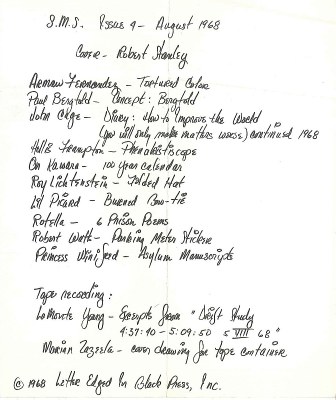 S.M.S. Issue 4 - August 1968
Cover - Robert Stanley
Arman Fernandez - Tortured Color
Paul Bergtold - Concept: Bergtold
John Cage - Diary: How to Improve the World
(you will only make matters worse) continued 1968
Hollis Frampton - Phenakistiscope
On Kawara - 100 year calendar
Roy Lichtenstein - Folded Hat
Lil Picard - Burned Bow-tie
Rotella - 6 Prison Poems
Robert Watts - Parking Meter Stickers
Princess Winifred - Asylum Manuscripts
Tape recording:
LaMonte Young - Excerpts from "Drift Study
4:37:40 - 5:09:50 5 VIII 68"
Marian Zazeela - cover drawing for tape container
© 1968 Letter Edged In Black Press, Inc.